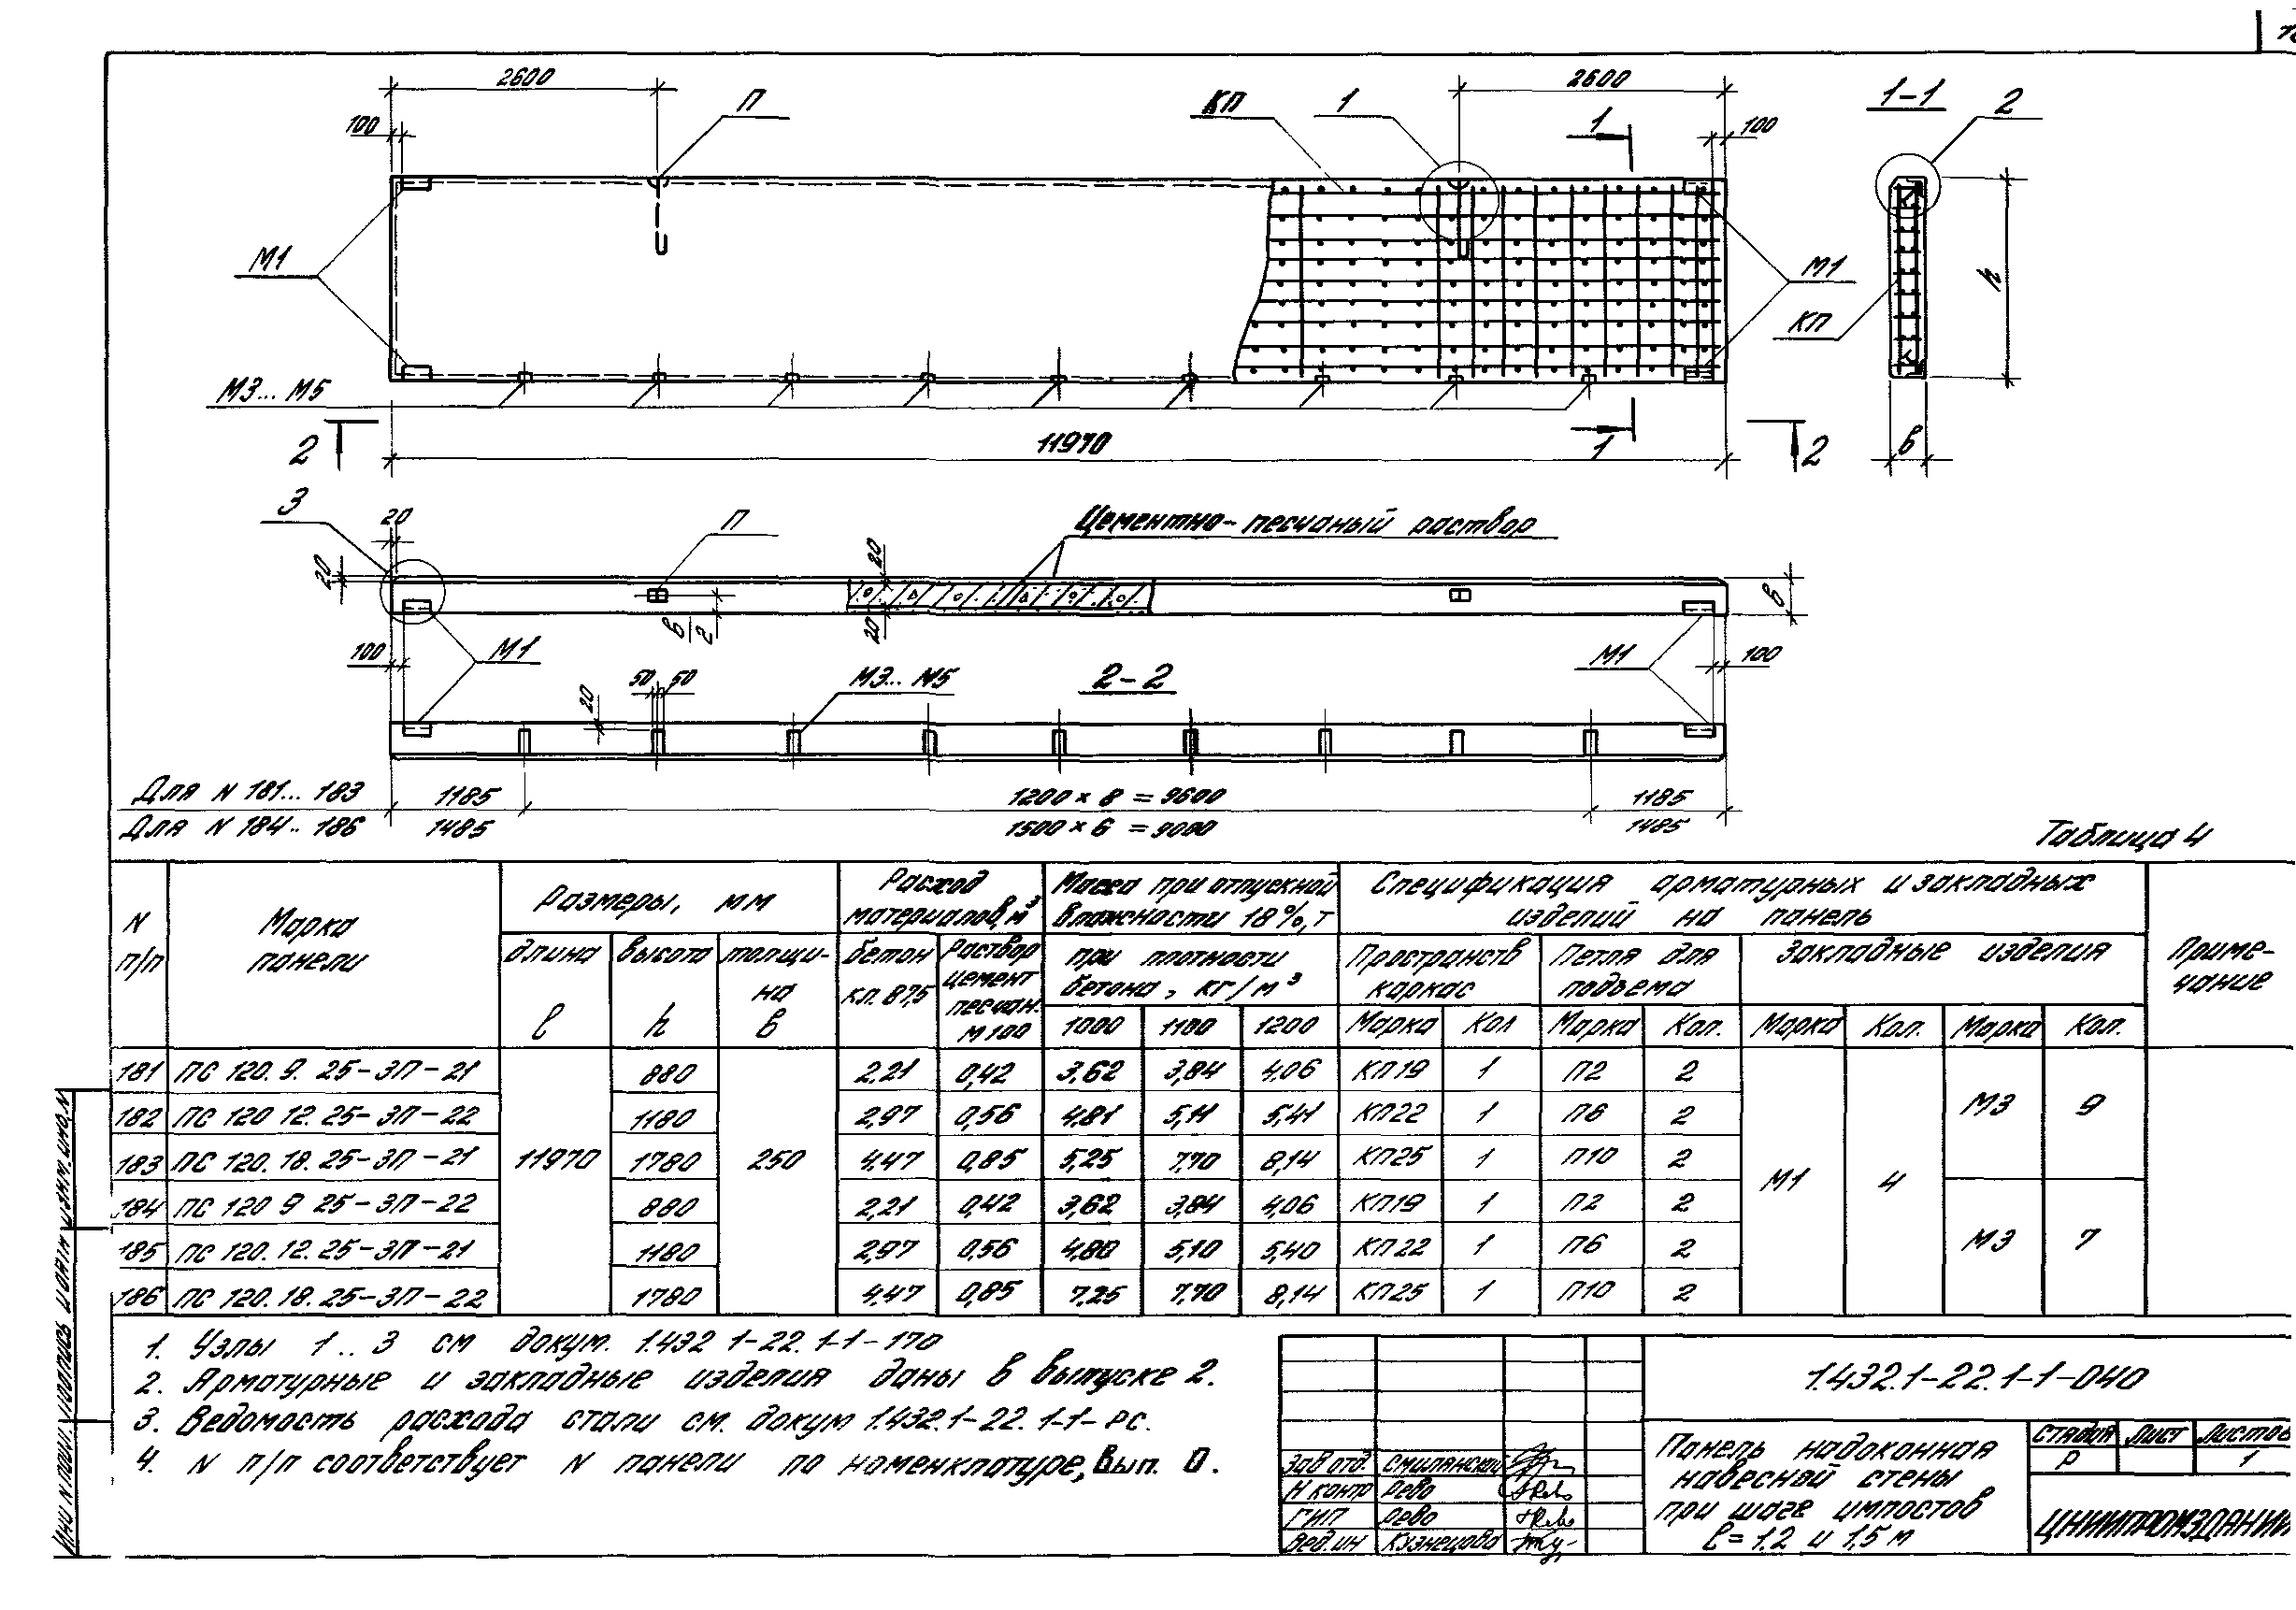 2600
П
КП
1
2600
1
1-1
2
100
100
М1
М1
КП
h
М3... М5
2
11970
1
2
в
3
20
П
Цементно-песчаный раствор
20
20
в
20
в/2
100
М1
М1
100
50 50
М3... М5
2-2
20
Для N 181... 183 1185 1200 × 8 = 9600 1185
Для N 184.. 186 1485 1500 × 6 = 9000 1485
Таблица 4
N п/п
Марка панели
Размеры, мм
Расход материалов, м³
Масса при отпускной влажности 18%, т
Спецификация арматурных и закладных изделий на панель
Приме-чание
длина l
высота h
толщи-на в
бетон кл. В7,5
Раствор цемент песчан. М100
при плотности бетона, кг/м³
Пространств каркас
Петля для подъема
Закладные изделия
1000 1100 1200 Марка Кол Марка Кол. Марка Кол. Марка Кол.
181 ПС 120. 9. 25-3П-21 880 2,21 0,42 3,62 3,84 4,06 КП19 1 П2 2
182 ПС 120 12. 25-3П-22 1180 2,97 0,56 4,81 5,11 5,41 КП22 1 П6 2 М3 9
183 ПС 120. 18. 25-3П-21 11970 1780 250 4,47 0,85 5,25 7,70 8,14 КП25 1 П10 2 М1 4
184 ПС 120 9 25-3П-22 880 2,21 0,42 3,62 3,84 4,06 КП19 1 П2 2
185 ПС 120. 12. 25-3П-21 1180 2,97 0,56 4,80 5,10 5,40 КП22 1 П6 2 М3 7
186 ПС 120. 18. 25-3П-22 1780 4,47 0,85 7,25 7,70 8,14 КП25 1 П10 2
1. Узлы 1 .. 3 см докум. 1.432 1-22. 1-1-170
2. Арматурные и закладные изделия даны в выпуске 2.
3. Ведомость расхода стали см. докум 1.432.1-22. 1-1-РС.
4. N п/п соответствует N панели по номенклатуре, Вып. 0.
1.432.1-22.1-1-040
Зав отд. Смилянский
Н контр Рево
ГИП Рево
Вед.ин Кузнецова
Панель надоконная
навесной стены
при шаге импостов
l = 1,2 и 1,5 м
Стадия Лист Листов
Р 1
ЦНИИПРОМЗДАНИЙ
Инв N подл. Подпись и дата Взам. инв. N